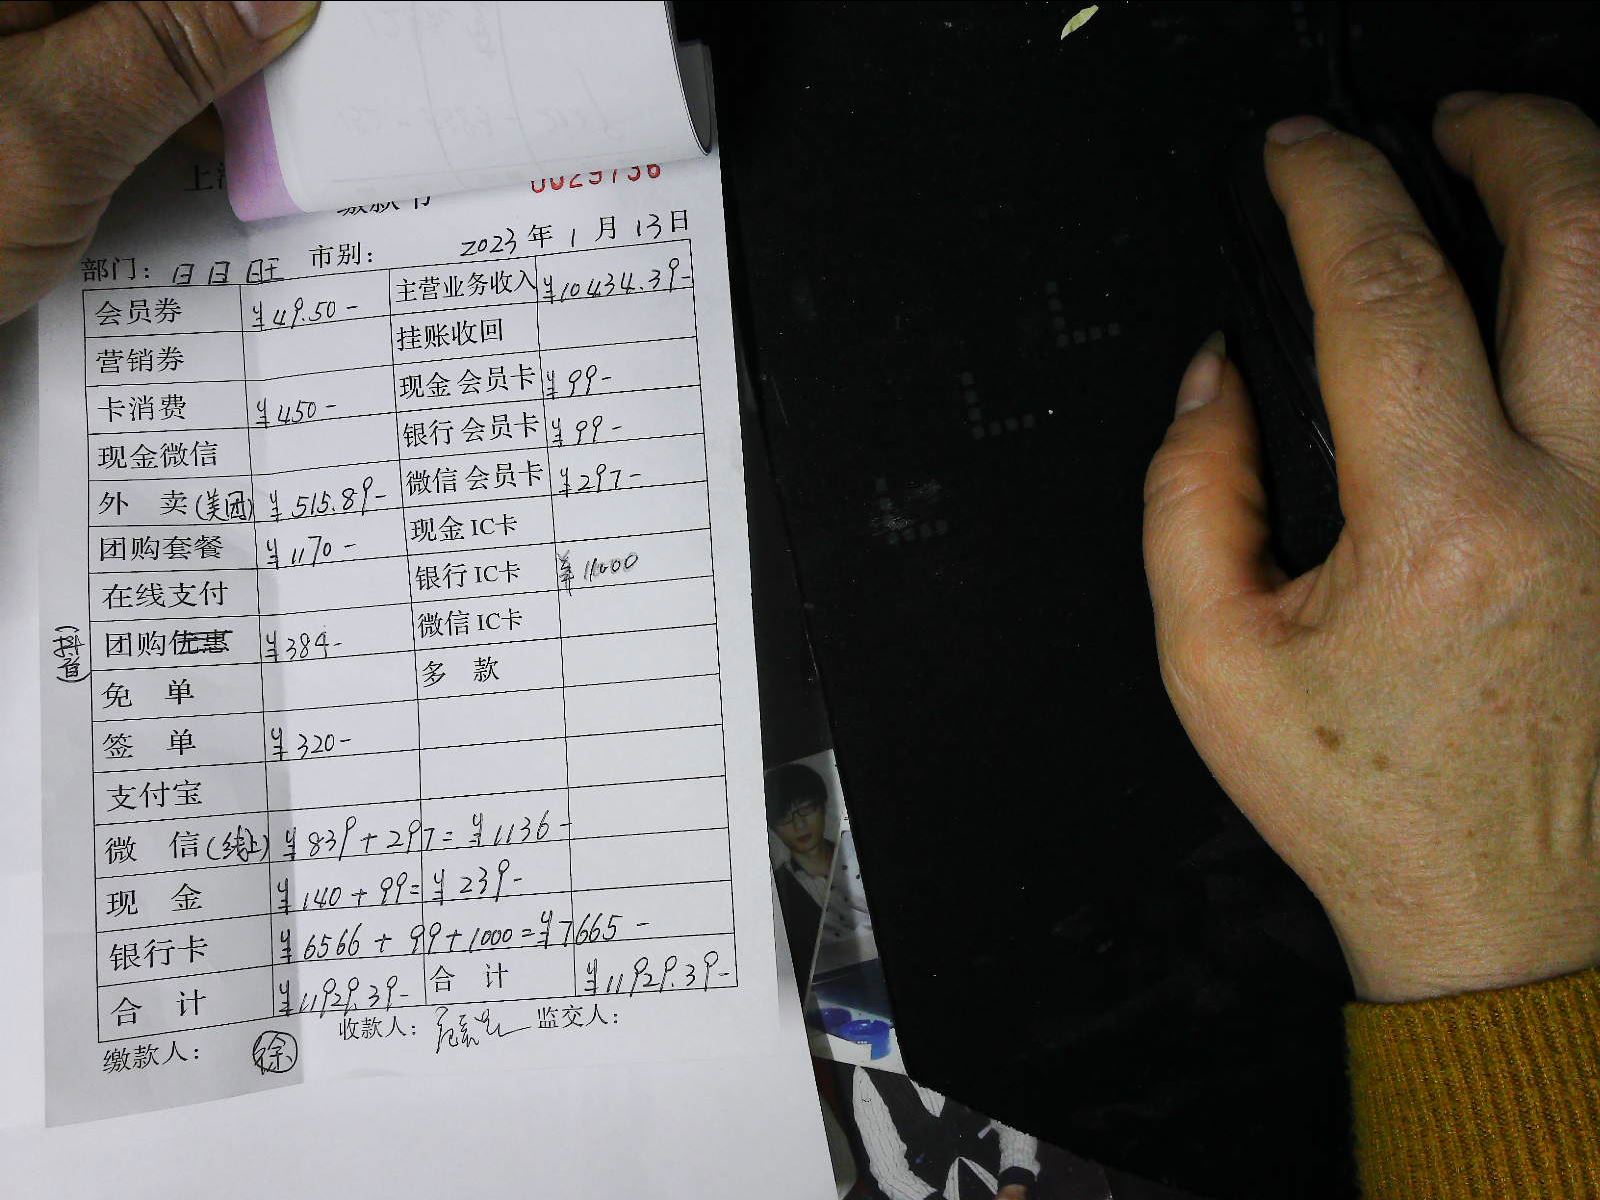 上
0029736
缴款书
部门：日日旺 市别： 2023年1月13日
会员券 ¥49.50- 主营业务收入 ¥10434.39-
营销券 挂账收回
卡消费 ¥450- 现金会员卡 ¥99-
现金微信 银行会员卡 ¥99-
外 卖(美团) ¥515.89- 微信会员卡 ¥297-
团购套餐 ¥1170- 现金IC卡
在线支付 银行IC卡 ¥1000
(抖音) 团购优惠 ¥384- 微信IC卡
免 单 多 款
签 单 ¥320-
支付宝
微 信(线上) ¥839+297=¥1136-
现 金 ¥140+99=¥239-
银行卡 ¥6566+99+1000=¥7665-
合 计 ¥11929.39- 合 计 ¥11929.39-
缴款人： 徐 收款人： 监交人：